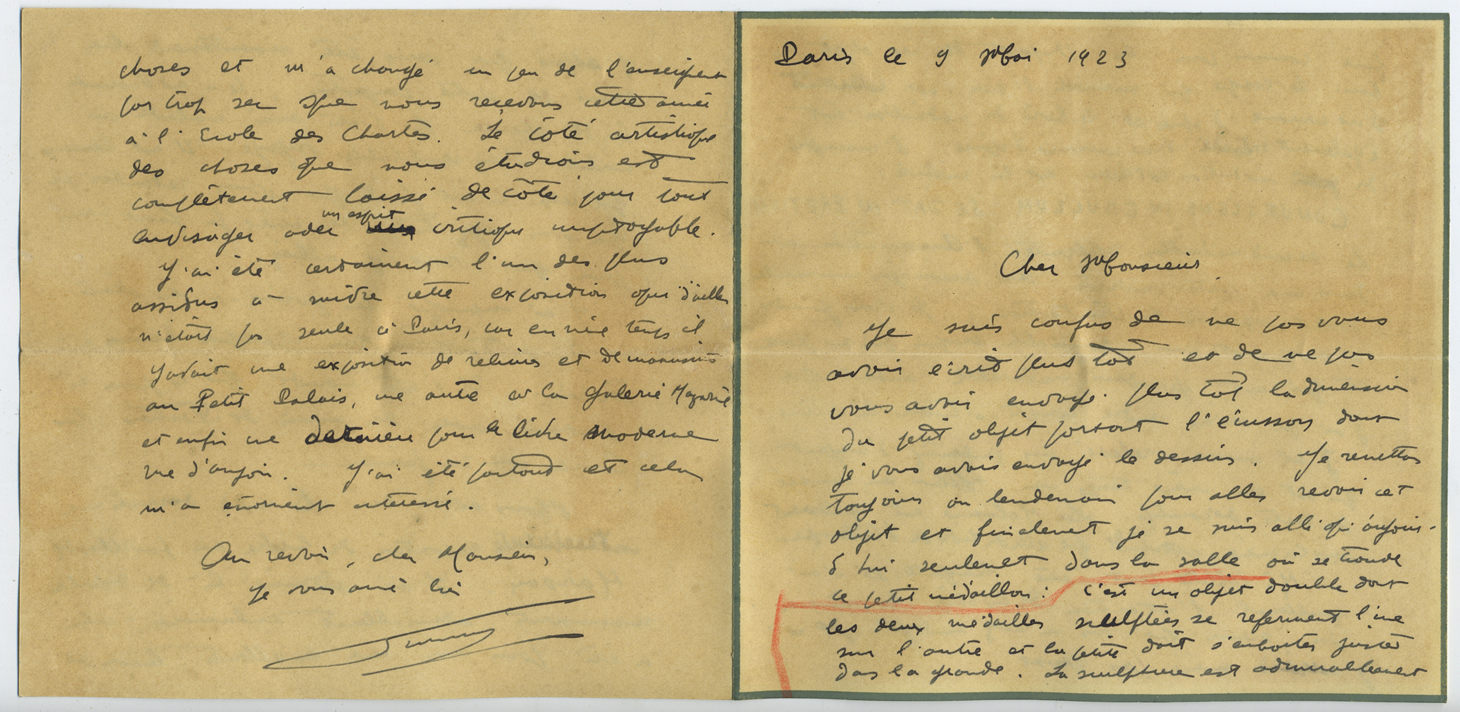 Paris le 9 Mai 1923
Cher Monsieur,
Je suis confus de ne pas vous
avoir écrit plus tôt et de ne pas
vous avoir envoyé plus tôt la dimension
du petit objet portant l'écusson dont
je vous avais envoyé le dessin. Je remettais
toujours au lendemain pour aller revoir cet
objet et finalement je ne suis allé qu'aujour-
d'hui seulement dans la salle où se trouve
ce petit médaillon : c'est un objet double dont
les deux médailles sculptées se referment l'une
sur l'autre et la petite doit s'emboiter juste
dans la grande. La sculpture est admirablement
choses et m'a changé un peu de l'enseignement
par trop sec que nous recevons cette année
à l'Ecole des Chartes. Le côté artistique
des choses que nous étudions est
complètement laissé de côté pour tout
envisager avec un esprit critique impitoyable.
J'ai été certainement l'un des plus
assidus à suivre cette exposition qui d'ailleurs
n'était pas seule à Paris, car en même temps il
y avait une exposition de reliures et de manuscrits
au Petit Palais, une autre à la Galerie Mazarine
et enfin une dernière pour le livre moderne
J'ai été partout et cela
m'a énormément intéressé.
Au revoir, cher Monsieur,
Je vous